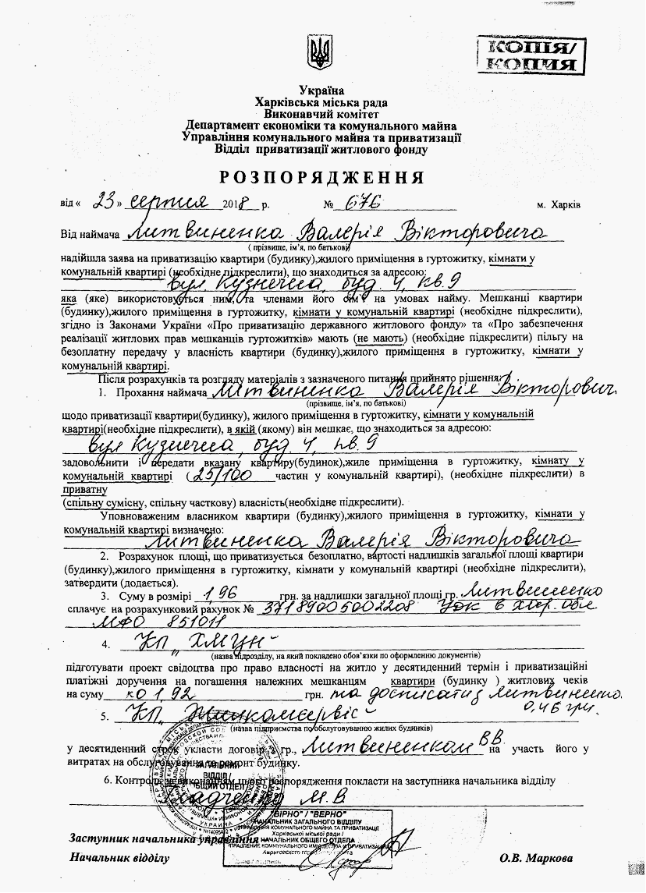 КОПІЯ/
КОПИЯ
Україна
Харківська міська рада
Виконавчий комітет
Департамент економіки та комунального майна
Управління комунального майна та приватизації
Відділ приватизації житлового фонду
РОЗПОРЯДЖЕННЯ
від « 23 » серпня 2018 р. № 676 м. Харків
Від наймача Литвиненка Валерія Вікторовича
( прізвище, ім'я, по батькові)
надійшла заява на приватизацію квартири (будинку),жилого приміщення в гуртожитку, кімнати у
комунальній квартирі (необхідне підкреслити), що знаходиться за адресою:
вул Кузнечна, буд. 4, кв. 9
яка (яке) використовується ним, та членами його сім'ї на умовах найму. Мешканці квартири
(будинку),жилого приміщення в гуртожитку, кімнати у комунальній квартирі (необхідне підкреслити),
згідно із Законами України «Про приватизацію державного житлового фонду» та «Про забезпечення
реалізації житлових прав мешканців гуртожитків» мають (не мають) (необхідне підкреслити) пільгу на
безоплатну передачу у власність квартири (будинку),жилого приміщення в гуртожитку, кімнати у
комунальній квартирі.
Після розрахунків та розгляду матеріалів з зазначеного питання прийнято рішення:
1. Прохання наймача Литвиненка Валерія Вікторович
(прізвище, ім'я, по батькові)
щодо приватизації квартири(будинку), жилого приміщення в гуртожитку, кімнати у комунальній
квартирі(необхідне підкреслити), в якій (якому) він мешкає, що знаходиться за адресою:
вул Кузнечна, буд 4, кв. 9
задовольнити і передати вказану квартиру(будинок),жиле приміщення в гуртожитку, кімнату у
комунальній квартирі (25/100 частин у комунальній квартирі), (необхідне підкреслити) в
приватну
(спільну сумісну, спільну часткову) власність(необхідне підкреслити).
Уповноваженим власником квартири (будинку),жилого приміщення в гуртожитку, кімнати у
комунальній квартирі визначено:
Литвиненка Валерія Вікторовича
2. Розрахунок площі, що приватизується безоплатно, вартості надлишків загальної площі квартири
(будинку),жилого приміщення в гуртожитку, кімнати у комунальній квартирі (необхідне підкреслити),
затвердити (додається).
3. Суму в розмірі 1,96 грн. за надлишки загальної площі гр. Литвиненко
сплачує на розрахунковий рахунок № 37189005002208 в Хар. обл
МФО 851011
4. КП „ХМЦН"
(назва підрозділу, на який покладено обов'язки по оформленню документів)
підготувати проект свідоцтва про право власності на житло у десятиденний термін і приватизаційні
платіжні доручення на погашення належних мешканцям квартири (будинку ) житлових чеків
на суму к0192 грн. та Литвиненко.
0,46 грн.
5. КП „Жилкомсервіс"
(назва підприємства по обслуговуванню жилих будинків)
у десятиденний строк укласти договір з гр., Литвиненком ВВ на участь його у
витратах на обслуговування та ремонт будинку.
6. Контроль за виконанням цього розпорядження покласти на заступника начальника відділу
М.В
ЗАГАЛЬНИЙ
ВІДДІЛ /
ОБЩИЙ ОТДЕЛ
УКРАИНА
"ВІРНО" / "ВЕРНО"
НАЧАЛЬНИК ЗАГАЛЬНОГО ВІДДІЛУ
УПРАВЛІННЯ КОМУНАЛЬНОГО МАЙНА ТА ПРИВАТИЗАЦІЇ
Харківської міської ради /
НАЧАЛЬНИК ОБЩЕГО ОТДЕЛА
УПРАВЛЕНИЕ КОММУНАЛЬНОГО ИМУЩЕСТВА И ПРИВАТИЗАЦИИ
Заступник начальника управління
Начальник відділу О.В. Маркова